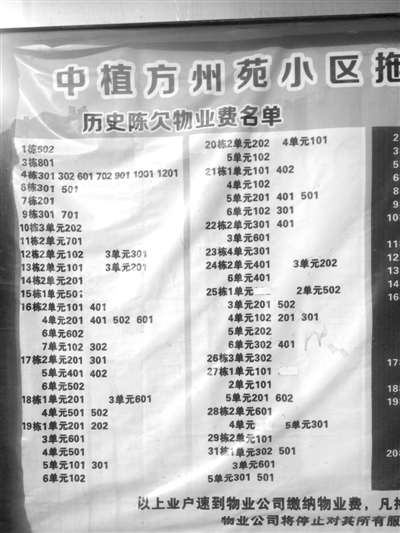 中植方州苑小区拖
历史陈欠物业费名单
1栋602
3栋801
4栋301 302 601 702 901 1001 1201
6栋301 501
7栋201
9栋301 701
10栋3单元202
11栋2单元701
12栋2单元102 3单元301
13栋2单元101 3单元201
14栋2单元201
15栋1单元501
16栋2单元101 401
4单元201 401 502 601
6单元602
7单元102 302
17栋2单元201 301
5单元401 402
6单元502
18栋1单元201 3单元601
4单元501 502
19栋1单元201 202
3单元601
4单元501
5单元101 301
6单元102
20栋2单元202 4单元101
5单元102
21栋1单元101 402
4单元102
5单元201 401 501
6单元102 301
22栋2单元301 401
3单元601
23栋4单元301
24栋2单元401 3单元202
6单元401
25栋1单元 2单元502
3单元201 502
4单元102 201 301
5单元202
6单元302 401
26栋3单元302
27栋1单元101
2单元101
5单元201 602
28栋2单元601
4单元 5单元301
29栋2单元101
31栋1单元302 501
3单元601
5单元301 501
以上业户速到物业公司缴纳物业费，凡拒
物业公司将停止对其所有服